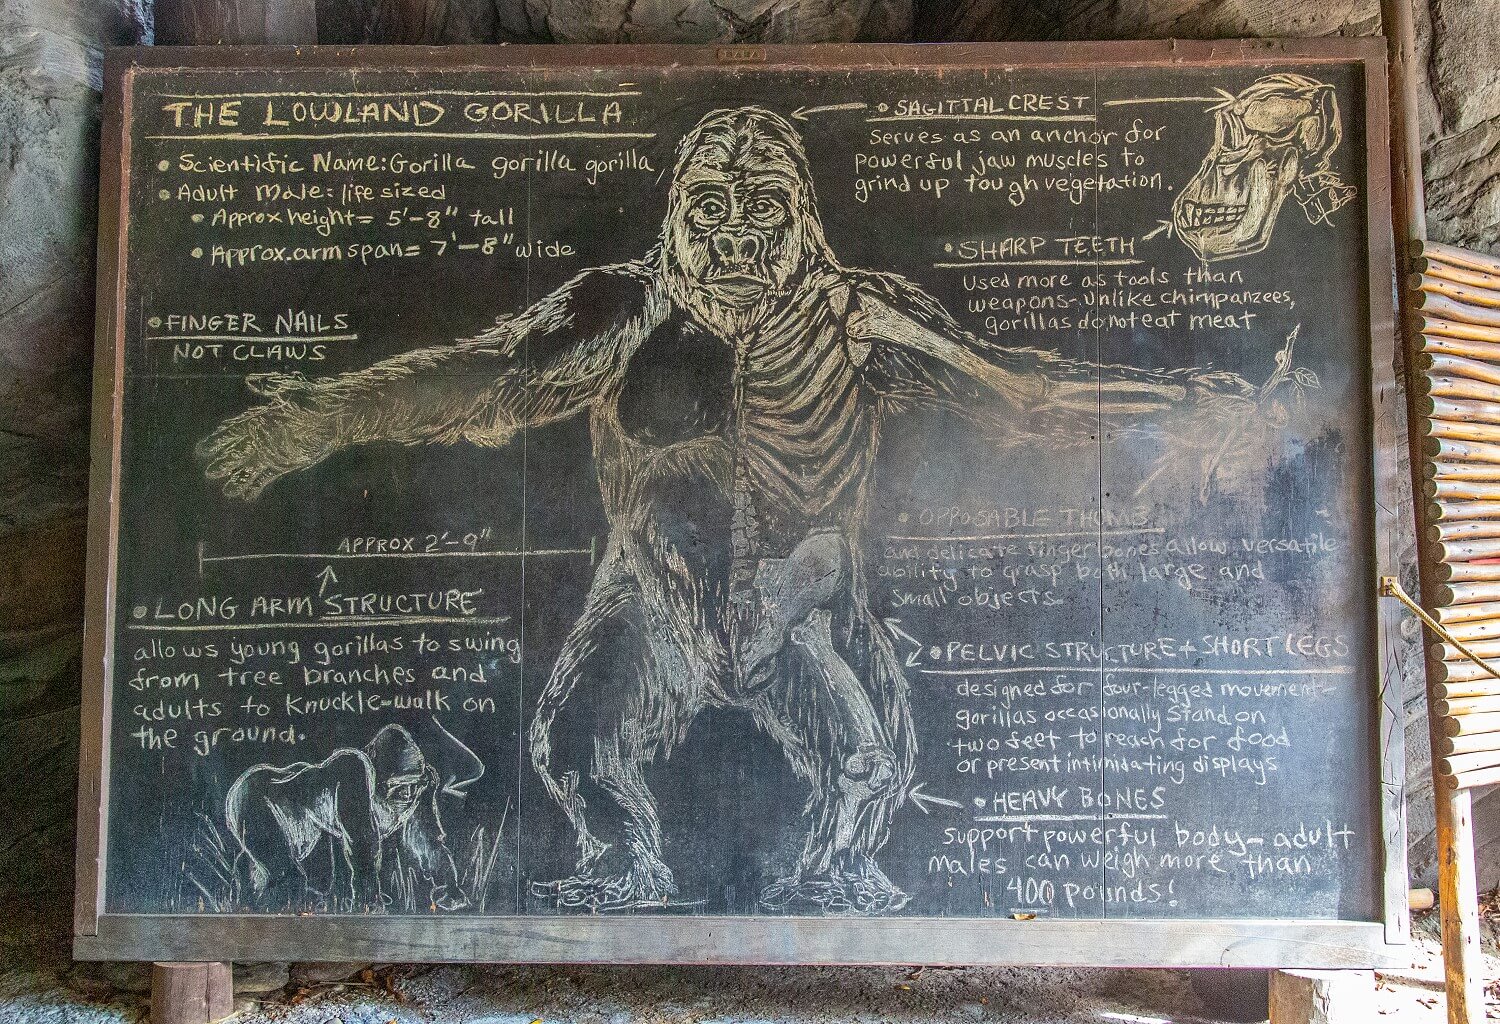 THE LOWLAND GORILLA
• Scientific Name: Gorilla gorilla gorilla
• Adult Male = life sized
• Approx height = 5'-8" tall
• Approx. arm span = 7'-8" wide
• FINGER NAILS
NOT CLAWS
APPROX 2'-9"
• LONG ARM STRUCTURE
allows young gorillas to swing
from tree branches and
adults to knuckle-walk on
the ground.
• SAGITTAL CREST
Serves as an anchor for
powerful jaw muscles to
grind up tough vegetation.
• SHARP TEETH
Used more as tools than
weapons-unlike chimpanzees,
gorillas do not eat meat
• OPPOSABLE THUMB
and delicate finger bones allow versatile
ability to grasp both large and
small objects
• PELVIC STRUCTURE + SHORT LEGS
designed for four-legged movement-
gorillas occasionally stand on
two feet to reach for food
or present intimidating displays
• HEAVY BONES
support powerful body-adult
males can weigh more than
400 pounds!